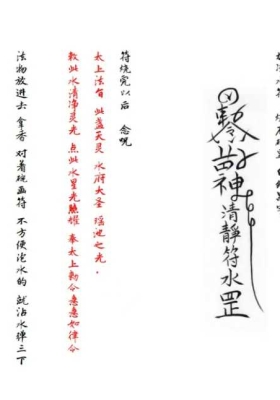 神清靜符水罡
符烧完以后 念咒
太上法 此盏天灵 水府大圣 瑶池之光.
敕此水清净灵光 点此水星光腾耀 奉太上勅令急急如律令
法物放进去 拿香 对着碗画符 不方便泡水的 就沾水弹三下